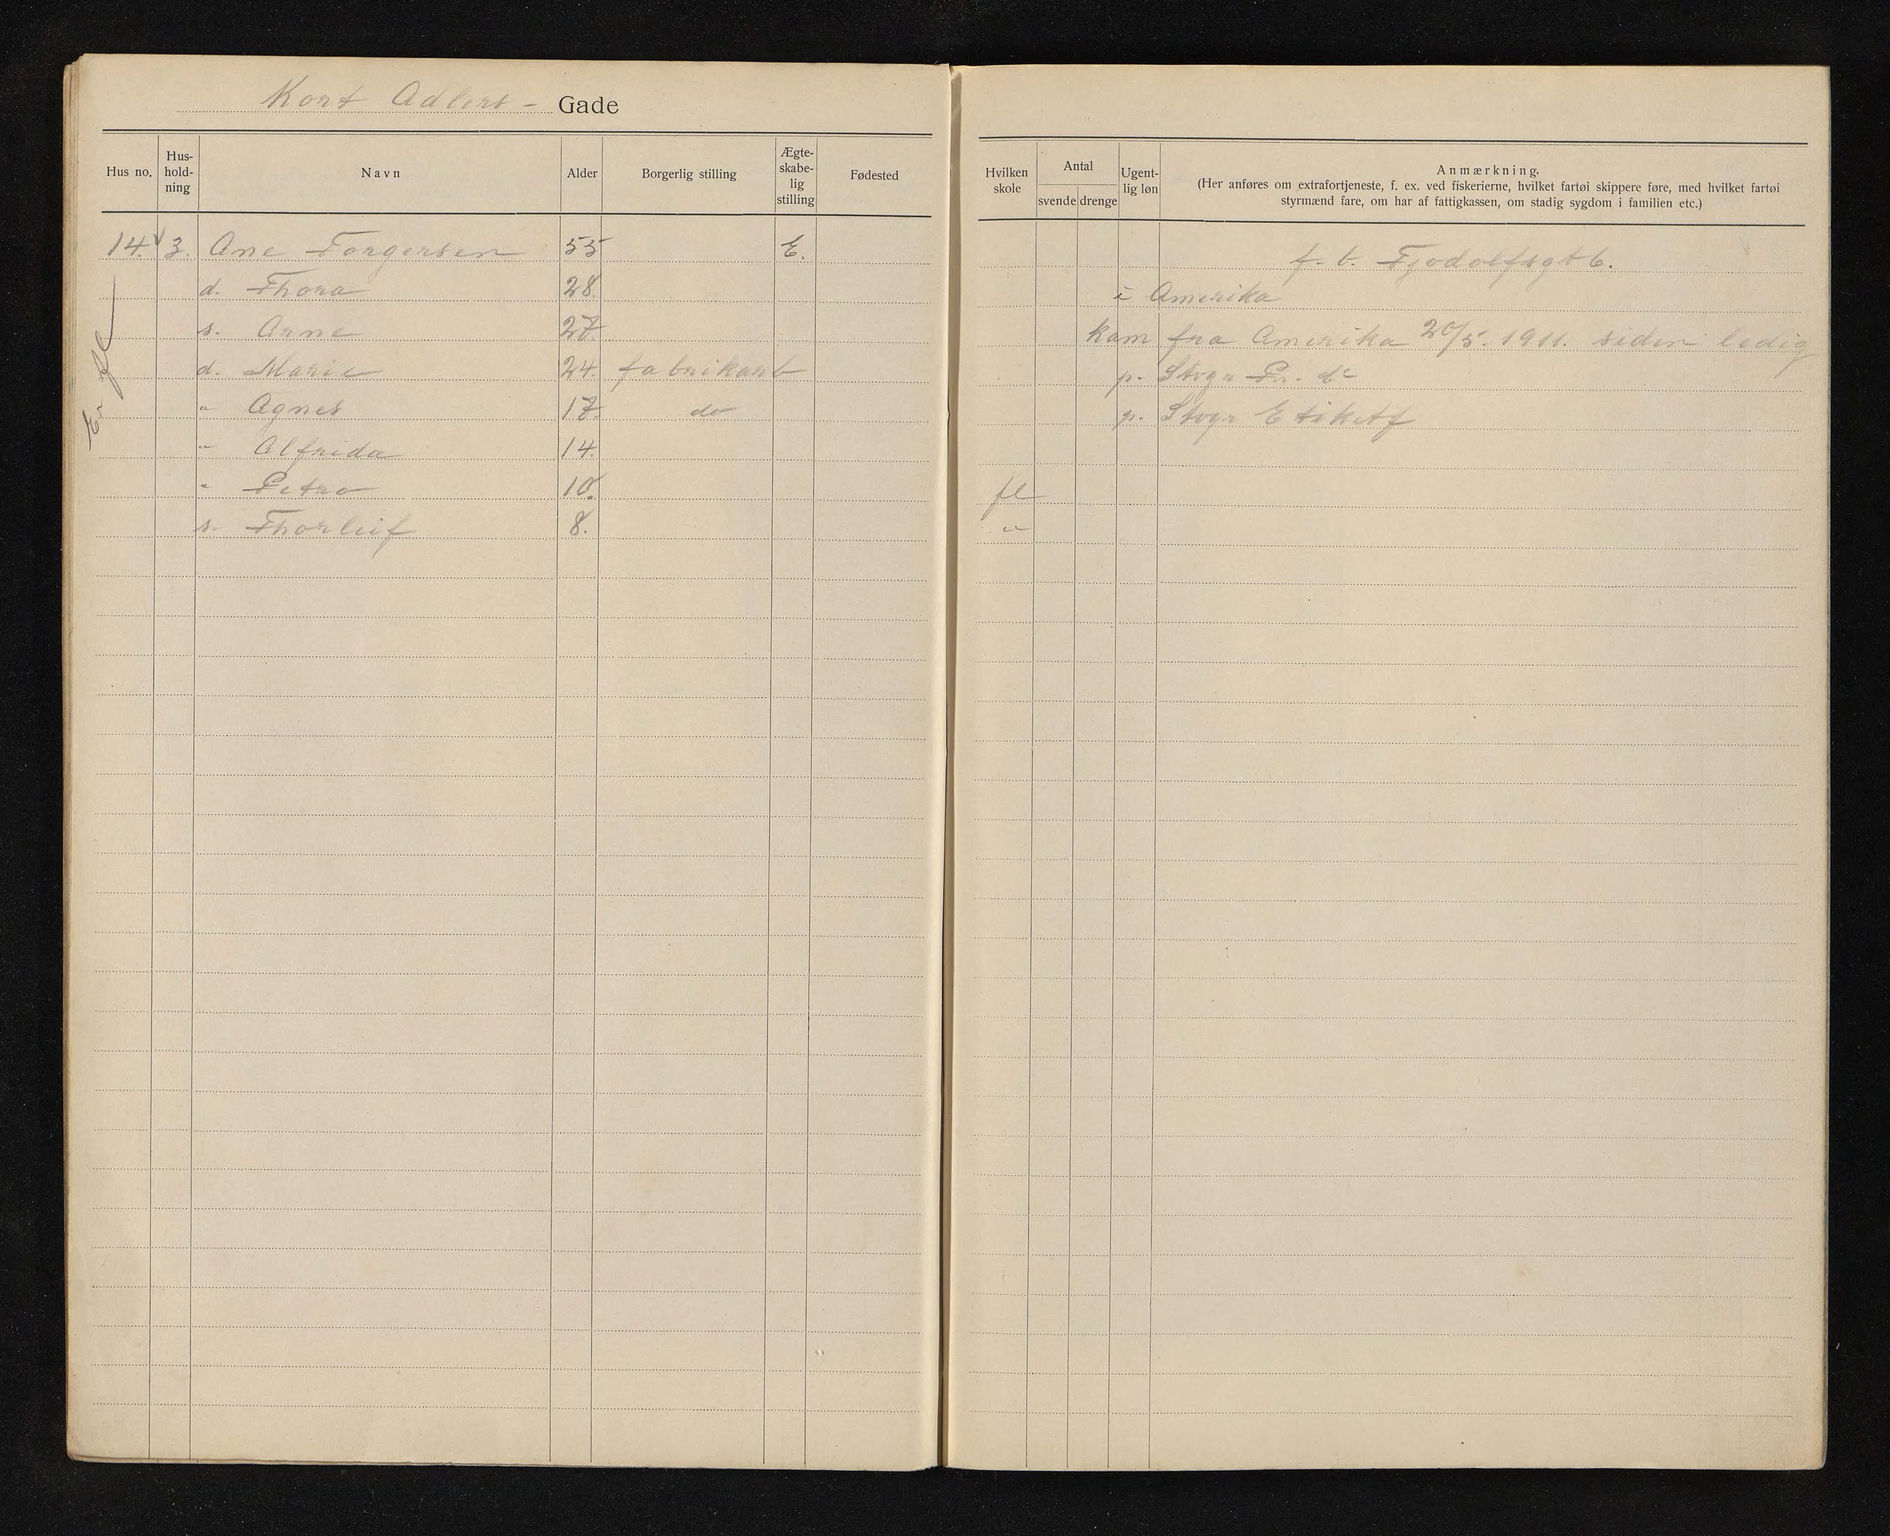 Kort Adlers - Gade
Hus no. Hus-hold-ning Navn Alder Borgerlig stilling Ægte-skabe-lig stilling Fødested
Hvilken skole Antal svende drenge Ugent-lig løn Anmærkning.
(Her anføres om extrafortjeneste, f. ex. ved fiskerierne, hvilket fartøi skippere føre, med hvilket fartøi
styrmænd fare, om har af fattigkassen, om stadig sygdom i familien etc.)
14. 3. Ane Torgersen 55 E. f. b. Tjodolfsgt 6.
d. Thora 28. i Amerika
s. Arne 27. kom fra Amerika 20/5. 1911. siden ledig
d. Marie 24. fabrikarb p. Stvgr Pr. do
" Agnes 17. do p. Stvgr Etiketf
" Alfrida 14.
" Petra 10. fl
s. Thorleif 8. "
Er fl